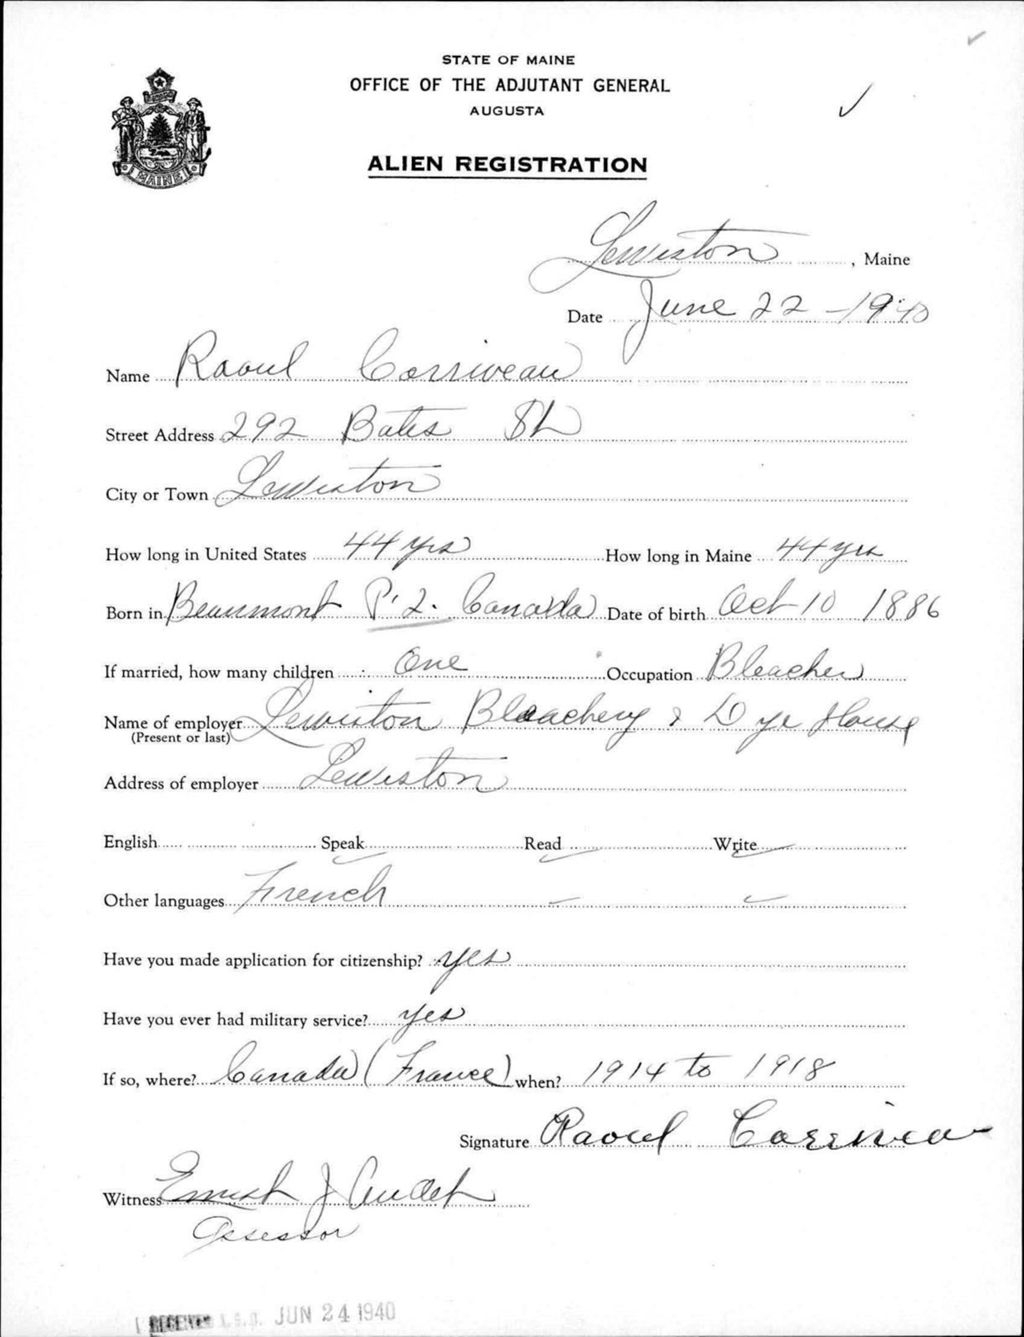 STATE OF MAINE
OFFICE OF THE ADJUTANT GENERAL
AUGUSTA
ALIEN REGISTRATION
MAINE
Lewiston, Maine
Date June 22 - 1940
Name Raoul Corriveau
Street Address 292 Bates St
City or Town Lewiston
How long in United States 44 yrs How long in Maine 44 yrs
Born in Beaumont P.2. Canada Date of birth Oct 10 1886
If married, how many children One Occupation Bleacher
Name of employer Lewiston Bleachery & Dye House
(Present or last)
Address of employer Lewiston
English Speak Read Write
Other languages French
Have you made application for citizenship? yes
Have you ever had military service? yes
If so, where? Canada (France) when? 1914 to 1918
Signature Raoul Corrivea
Witness Ernest J Audet
Assessor
RECEIVED A.G.O. JUN 24 1940